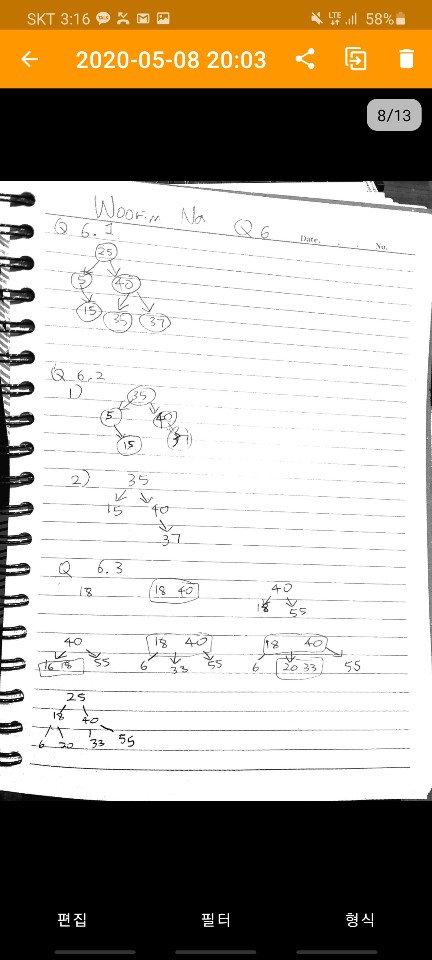 SKT 3:16 LTE 58%
2020-05-08 20:03
8/13
Woorim Na Q6
Date. No.
Q 6.1
25
5 40
15 35 37
Q 6.2
1) 35
5 40
15
2) 35
15 40
37
Q 6.3
18 18 40 40
18 55
40 18 40 18 40
16 18 55 6 33 55 6 20 33 55
25
18 40
6 20 33 55
편집 필터 형식